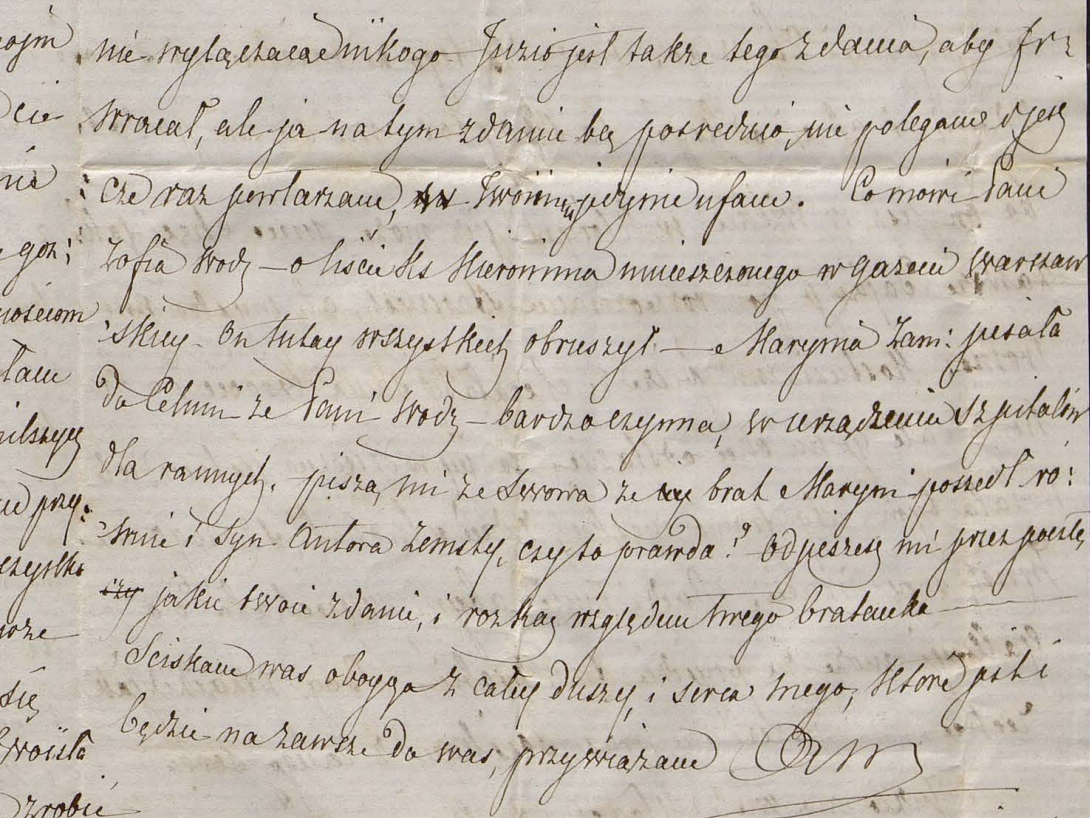 nie wyłączając nikogo Juzio jest także tego zdania, aby Fr:
wracał, ale ja na tym zdaniu bez pośrednio, nie polegam i jesz
cze raz powtarzam, Twoim jedynie ufam. Co mówi Pani
Zofia Wodz — o liście Ks Hieronima umieszczonego w gazecie Warszaw
skiey. On tutay wszystkich obruszył — Marynia Zam: pisała
do Celuni że Pani Wodz — bardzo czynna, w urządzeniu szpitalów
dla rannych. piszą mi ze Lwowa że brat Maryni poszedł ró:
wnie i syn Autora Zemsty, czy to prawda? Odpiszesz mi przez pocztę,
jakie twoie zdanie, i rozkaz względem twego bratanka
Sciskam was oboyga z całey duszy, i serca mego, które jest i
będzie na zawsze do was, przywiązane
ojm
cie
nie
goz:
nościom
łam
przy:
wszystko
może
się
zrobić